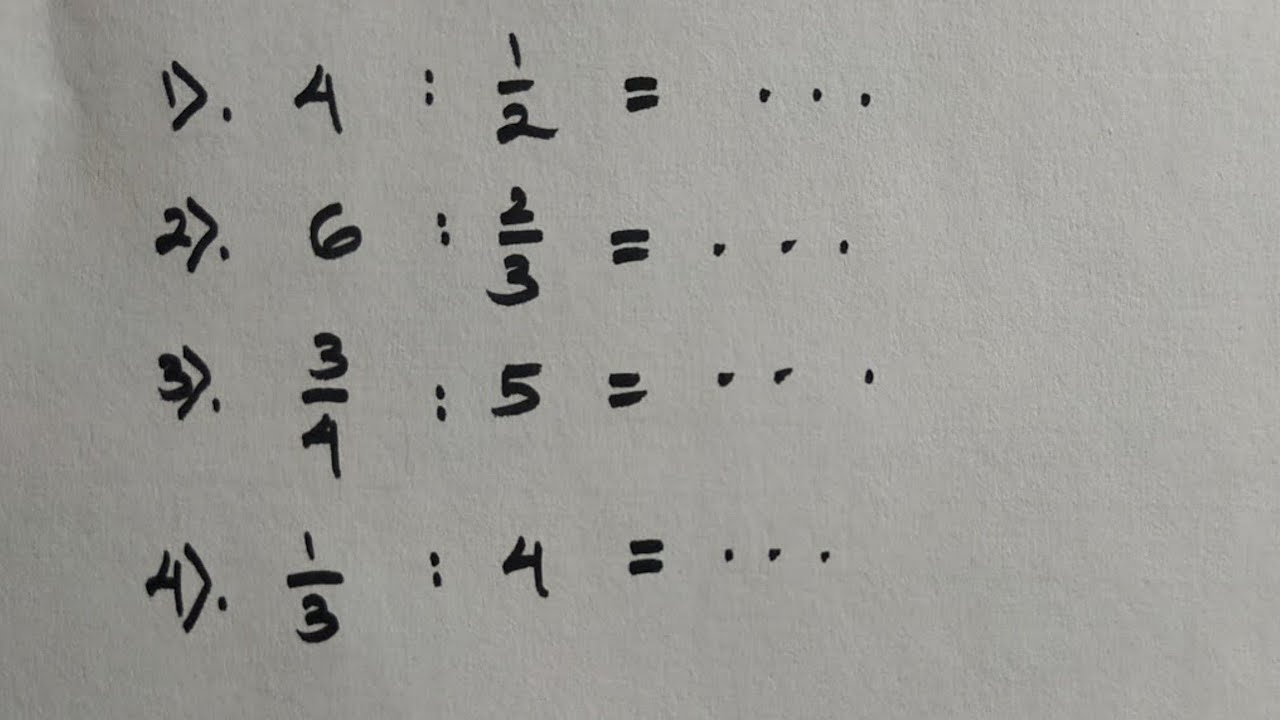 1). 4 : 1/2 = ...
2). 6 : 2/3 = ...
3). 3/4 : 5 = ...
4). 1/3 : 4 = ...